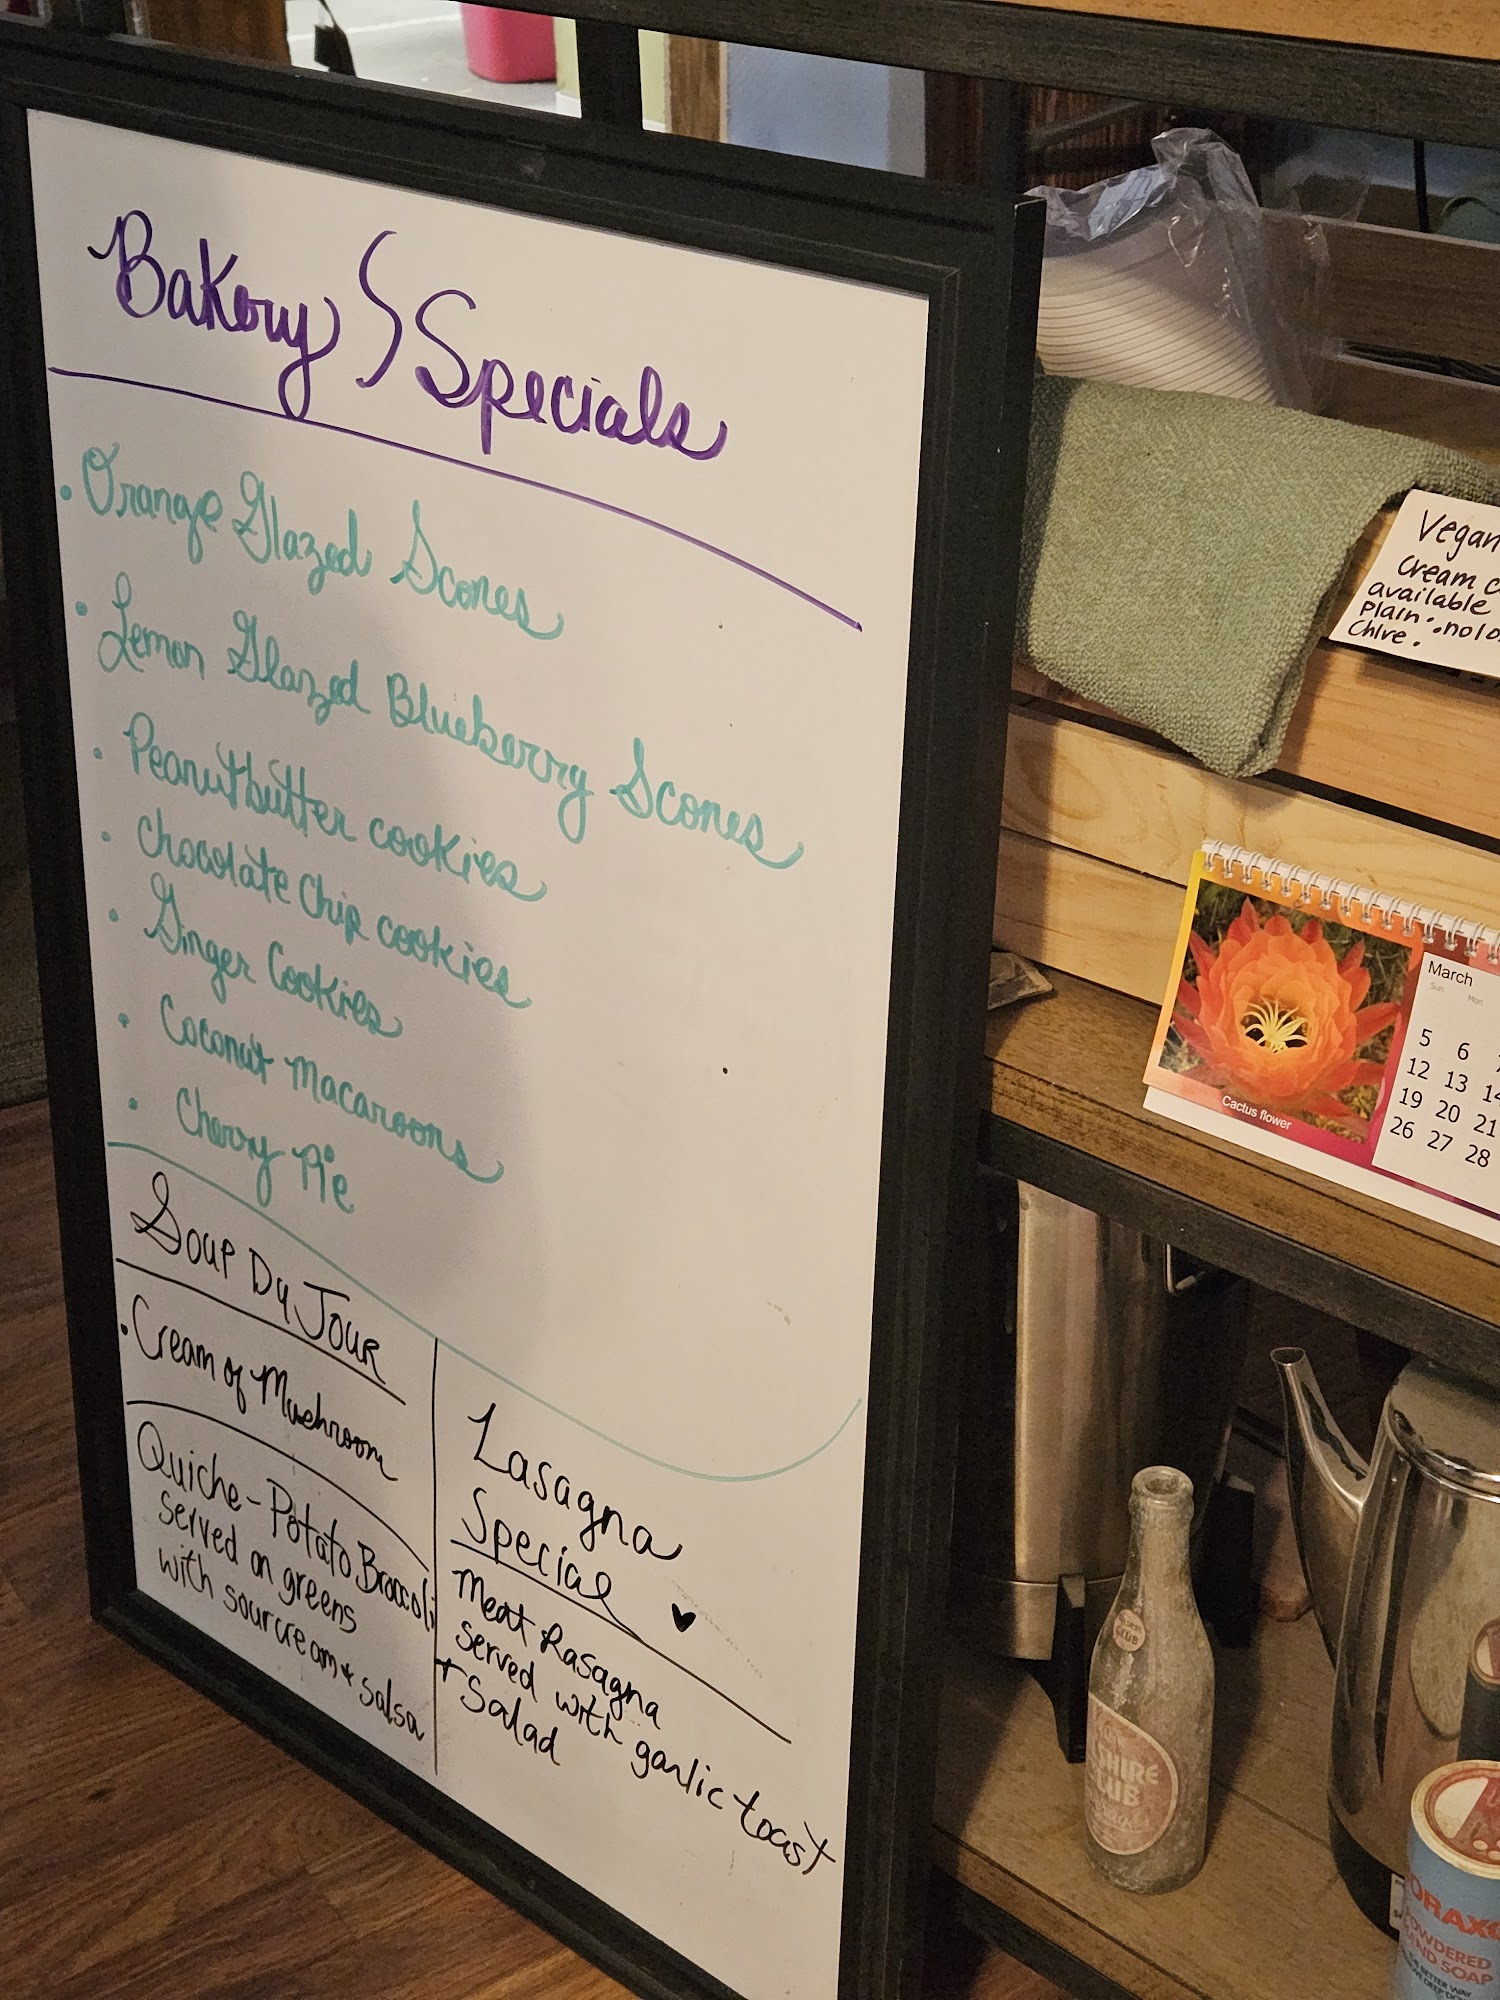 Bakery Specials
• Orange Glazed Scones
• Lemon Glazed Blueberry Scones
• Peanutbutter cookies
• Chocolate Chip cookies
• Ginger Cookies
• Coconut Macaroons
• Cherry Pie
Soup Du Jour
• Cream of Mushroom
Quiche - Potato Broccoli
served on greens
with sourcream + salsa
Lasagna
Special
Meat Lasagna
served with garlic toast
+ Salad
Vegan
Cream
available
Plain
Chive.
Cactus flower
March
Sun Mon
5 6
12 13 14
19 20 21
26 27 28
CLUB